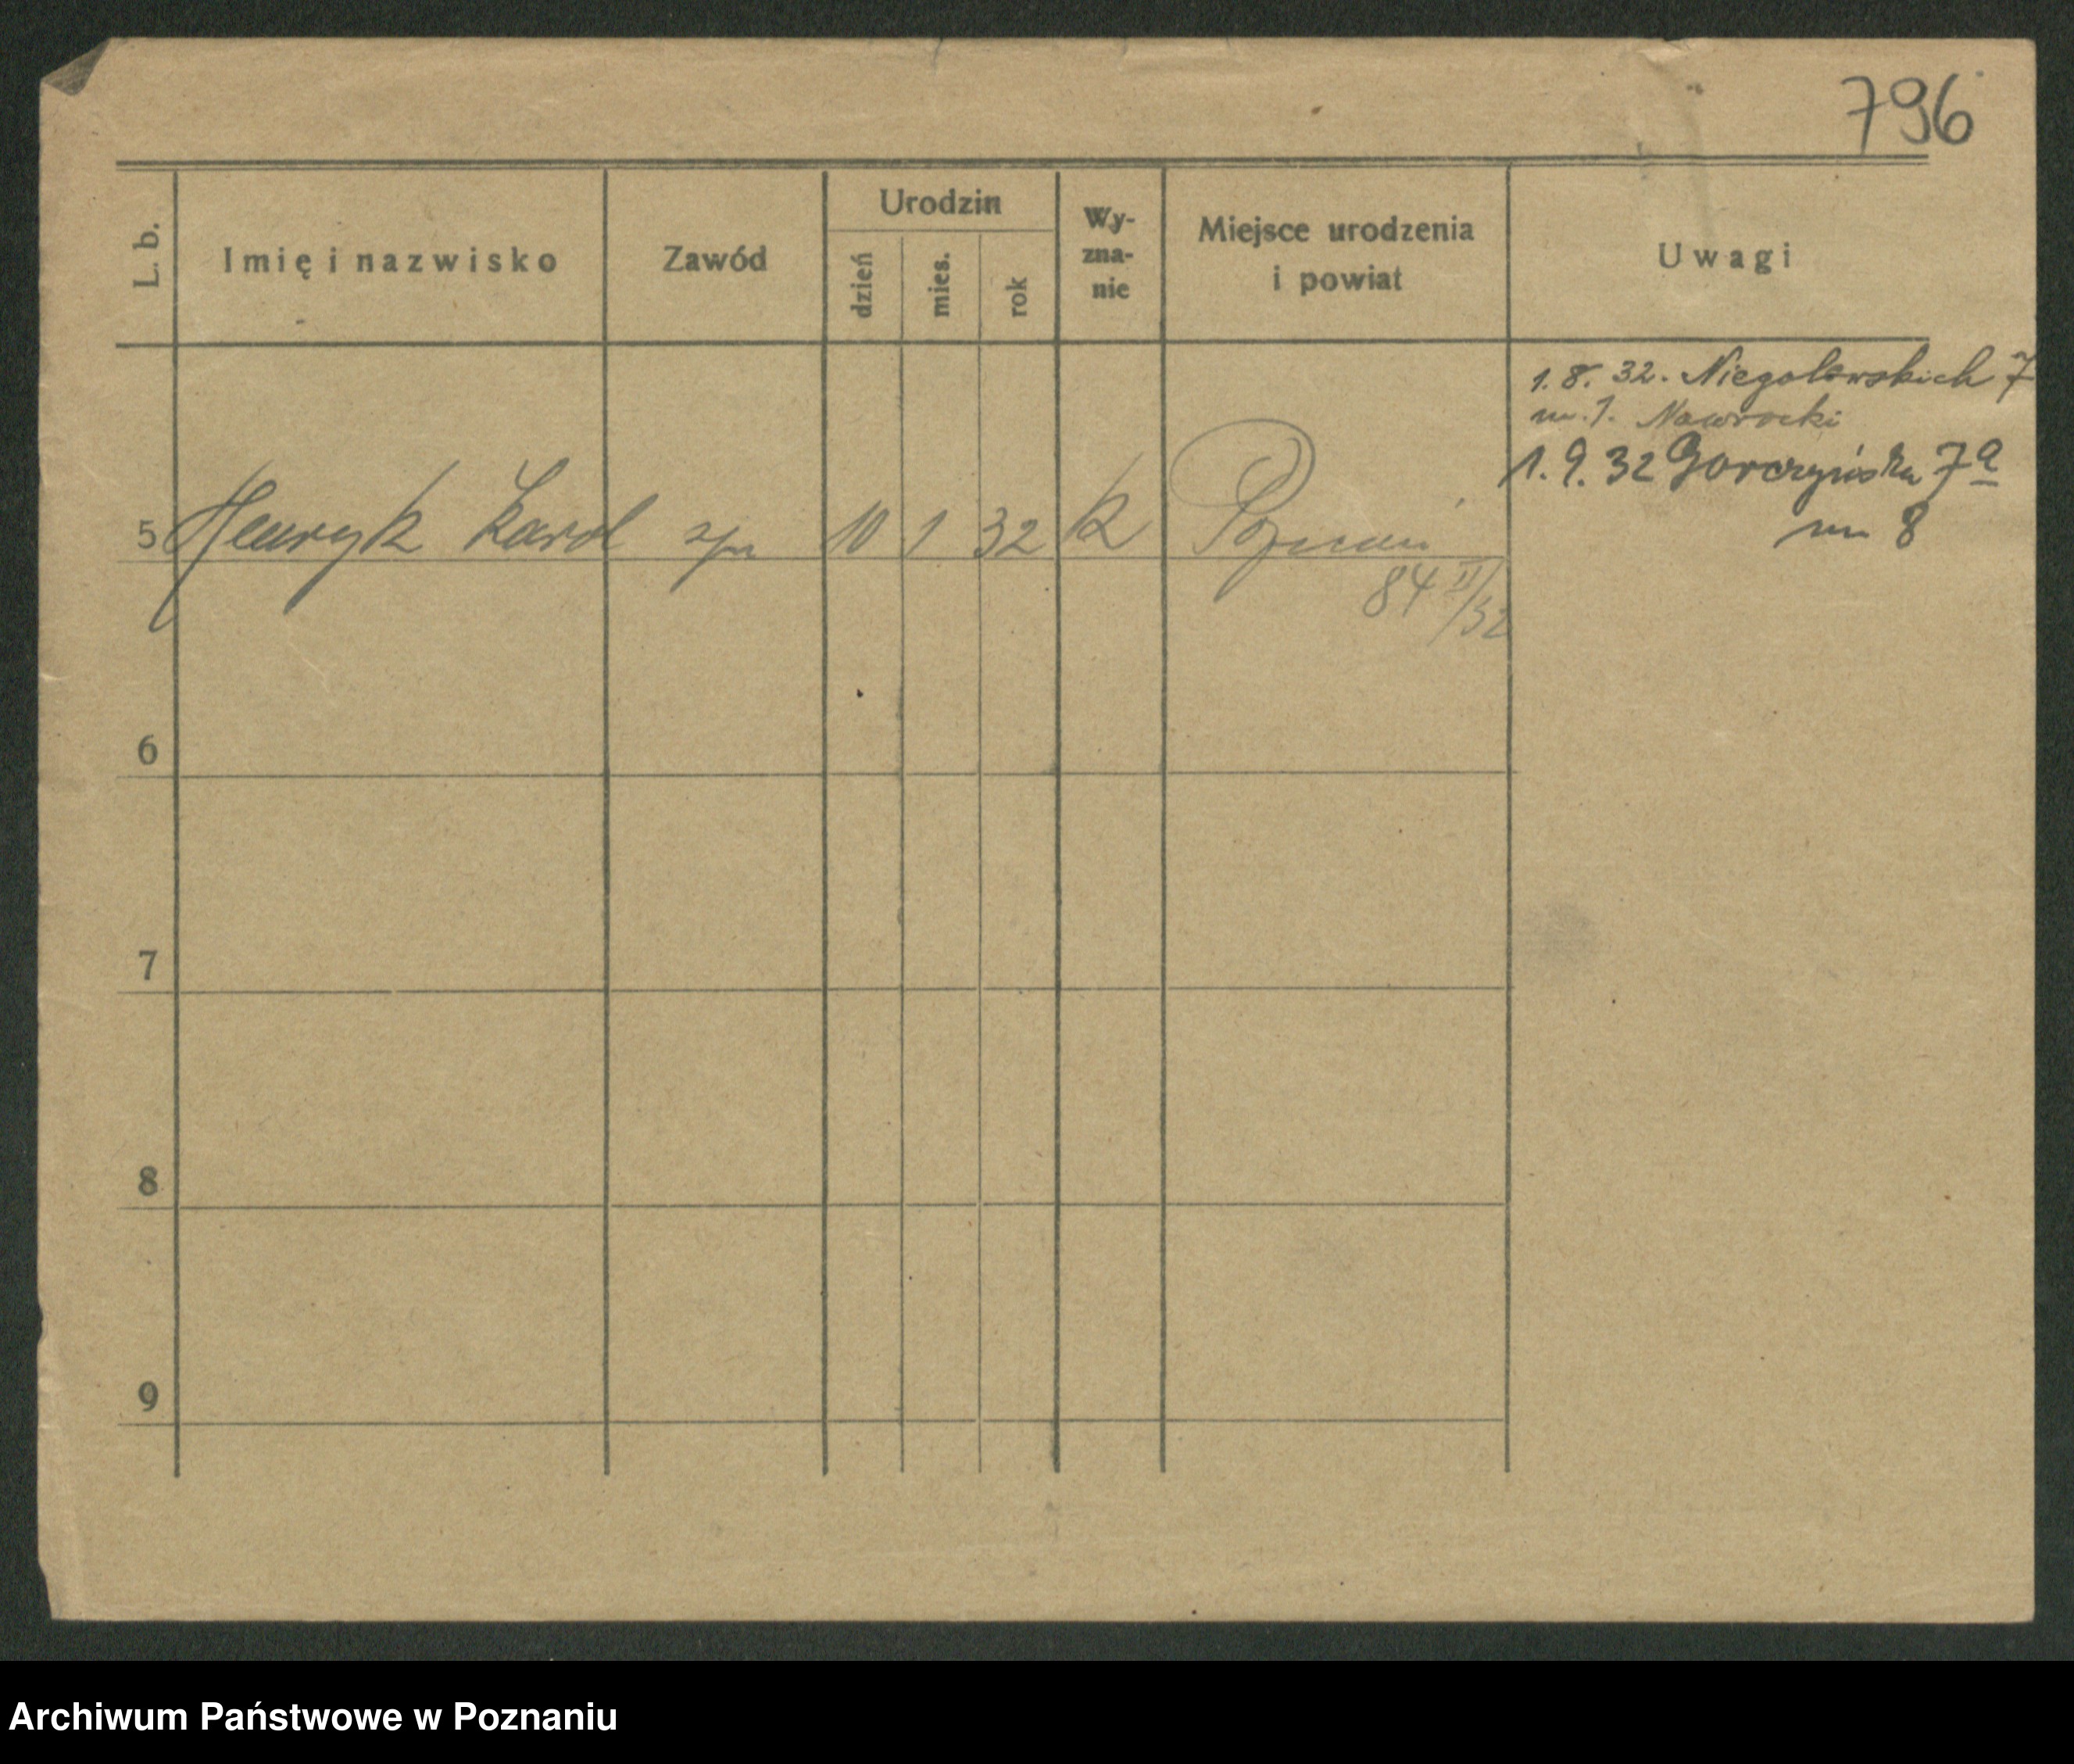 796
L. b.
Imię i nazwisko
Zawód
Urodzin
dzień
mies.
rok
Wy-
zna-
nie
Miejsce urodzenia
i powiat
Uwagi
1. 8. 32. Niegolewskich 7
m. 1. Nawrocki
1. 9. 32 Gorczyńska 7a
m 8
5 Henryk Karol syn 10 1 32 k Poznań
84 II/32
6
7
8
9
Archiwum Państwowe w Poznaniu